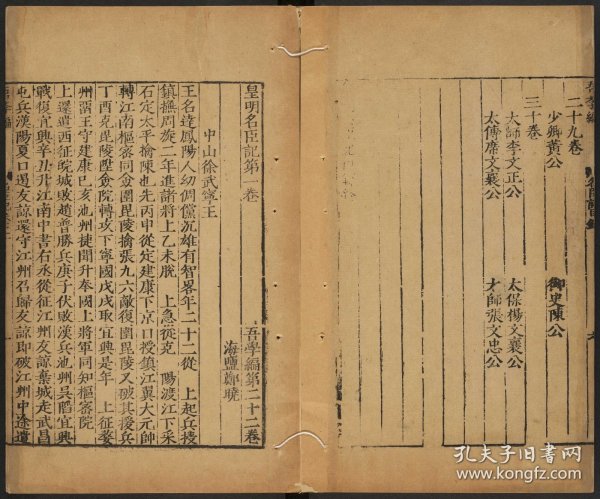 二十九卷
少卿黃公
御史陳公
三十卷
太師李文正公
太保楊文襄公
太傅席文襄公
才師張文忠公
皇明名臣記第一卷
吾學編第二十二卷
海鹽鄭曉
中山徐武寧王
王名達鳳陽人幼倜儻沉雄有智畧年二十二從 上起兵授
鎮撫周旋二年進諸將上乙未脫 上急從克 陽渡江下采
石定太平擒陳也先丙申從定建康下京口授鎮江翼大元帥
轉江南樞密同僉圍毘陵擒張九六敵復圍毘陵又破其援兵
丁酉克毘陵陞僉院轉攻下寧國戊戌取宜興是年 上征婺
州畱王守建康己亥池州捷聞升奉國上將軍同知樞密院
上還遣西征院城敗趙普勝兵庚子伏敗漢兵池州吳䧟宜興
戰復宜興辛丑升江南中書右丞從征江州友諒棄城走武昌
屯兵漢陽夏口遏友諒還守江州召歸友諒即破江州中途遣
孔夫子旧书网
www.kongfz.com